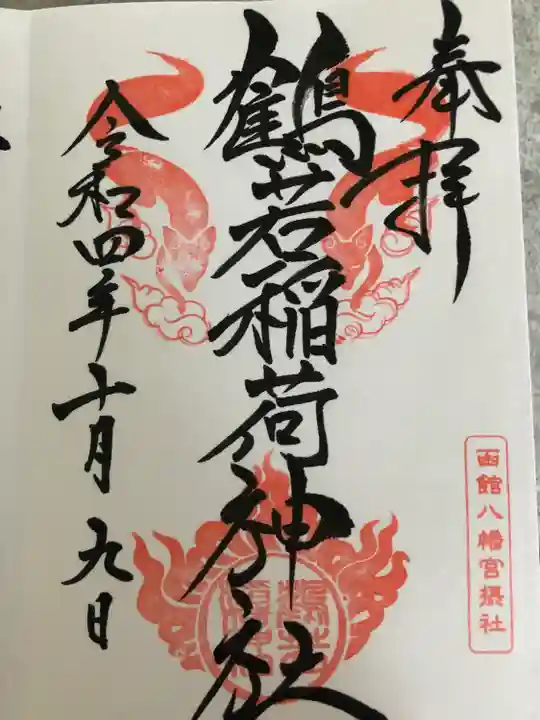 奉拝
函館八幡宮摂社
鶴若稲荷神社
令和四年十月九日